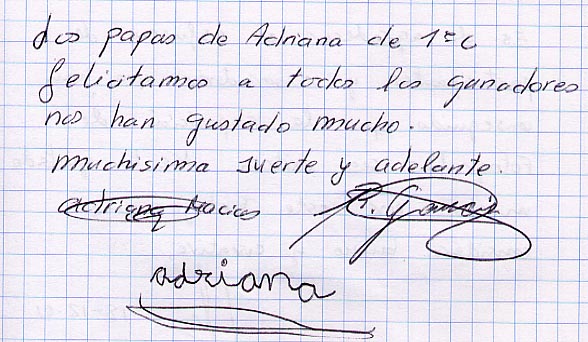 Los papas de Adriana de 1º C
felicitamos a todos los ganadores
nos han gustado mucho.
muchisima suerte y adelante.
adriana Macias R. Garcia
adriana